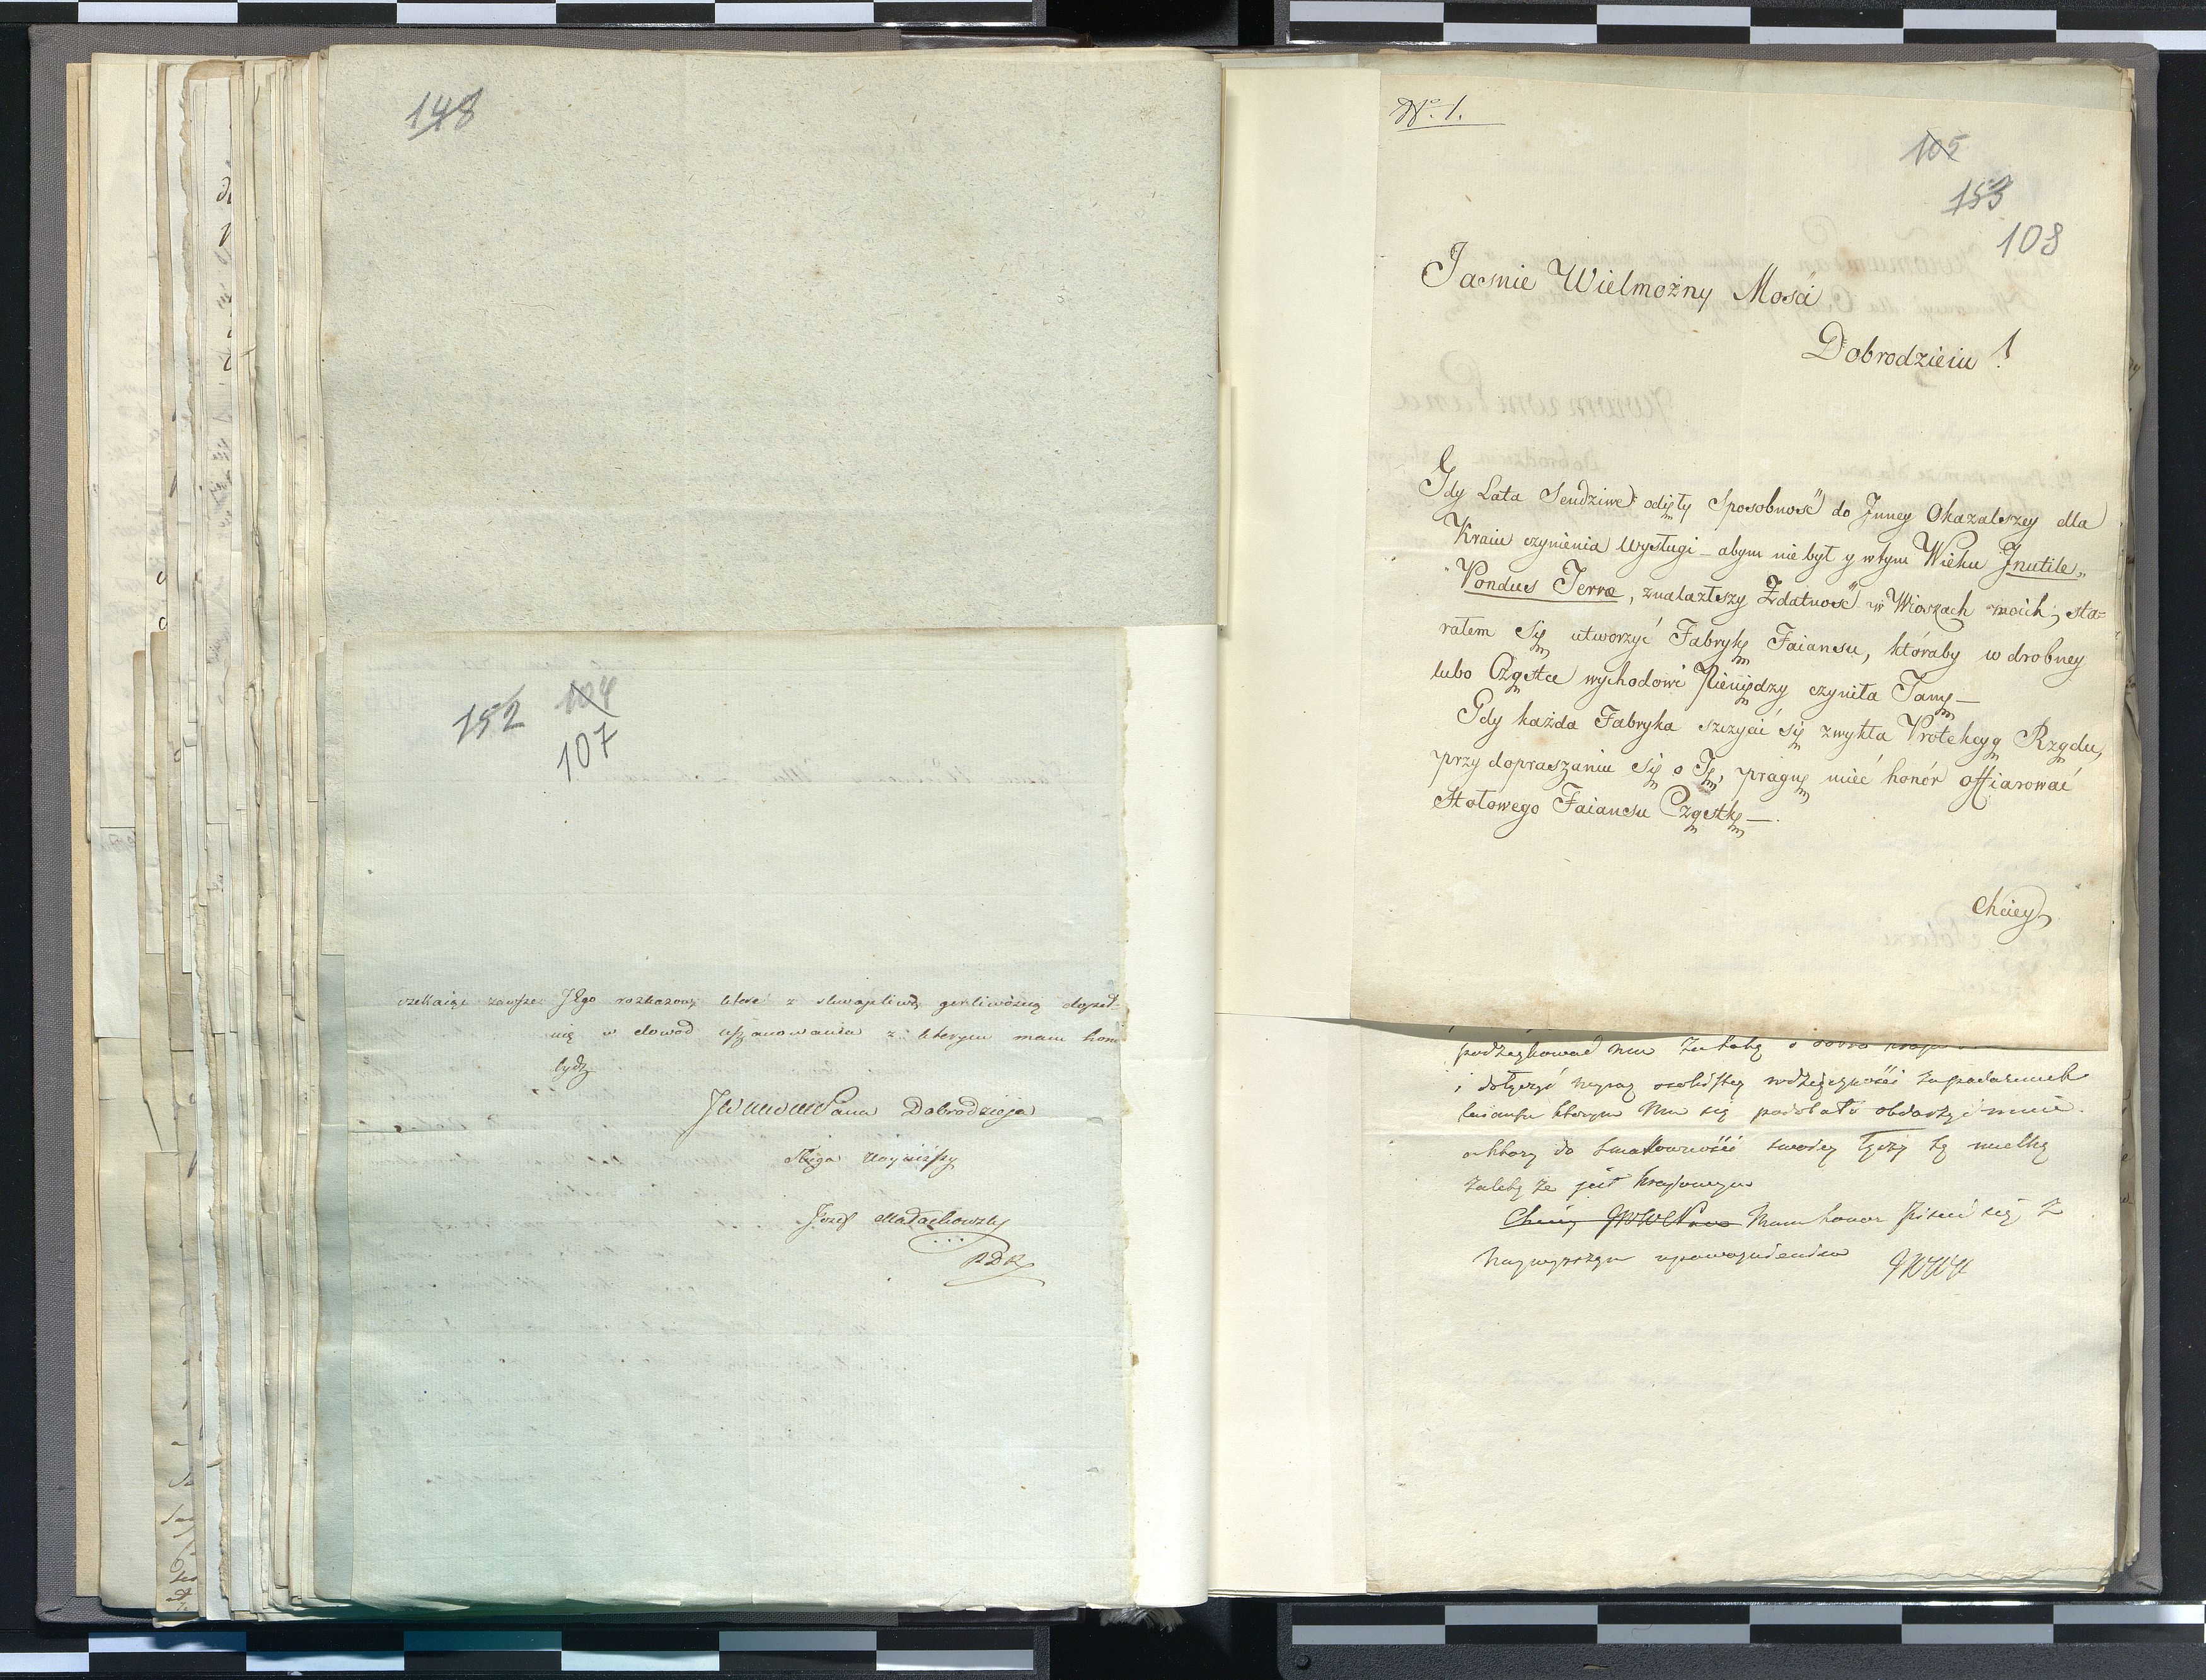 148
152 104
107
czekaiąc zawsze JEgo rozkazow, ktore z skwapliwą gorliwością dopeł-
nię w dowod uszanowania z kterym mam hon
bydź
JWWMWPana Dobrodzieja
Sługa Nayniższy
Jozef Małachowsky
PDK
No. 1.
105
153
108
Jasnie Wielmożny Mości
Dobrodzieiu !
Gdy Lata Sendziwe odięły Sposobność do Jnney Okazalszey dla
Kraiu czynienia Wysługi – abym nie był y w tym Wieku Jnutile„
"Pondus Terræ, znalazłszy Zdatność w Wioskach moich, sta-
rałem Się utworzyć Fabrykę Faiansu, któraby w drobney
lubo Cząstce wychodowi Pieniędzy czyniła Tamę –
Gdy każda Fabryka szczycić się zwykła Protekcyą Rządu,
przy dopraszaniu Się o Tę, pragnę mieć honór offiarować
Stołowego Faiansu Cząstkę – .
Chciey
podziękować mu za
i dołączyć wyraz osobistey wdzięczności za podarunek
faiansu ktorym mu się podobało obdarzyć mnie.
a ktory do smakowności swoiey łączy tę wielką
zaletę że jest krajowym
Chciey JWWPan Mam honor pisać się z
Naywyższym upoważnieniem JWWM